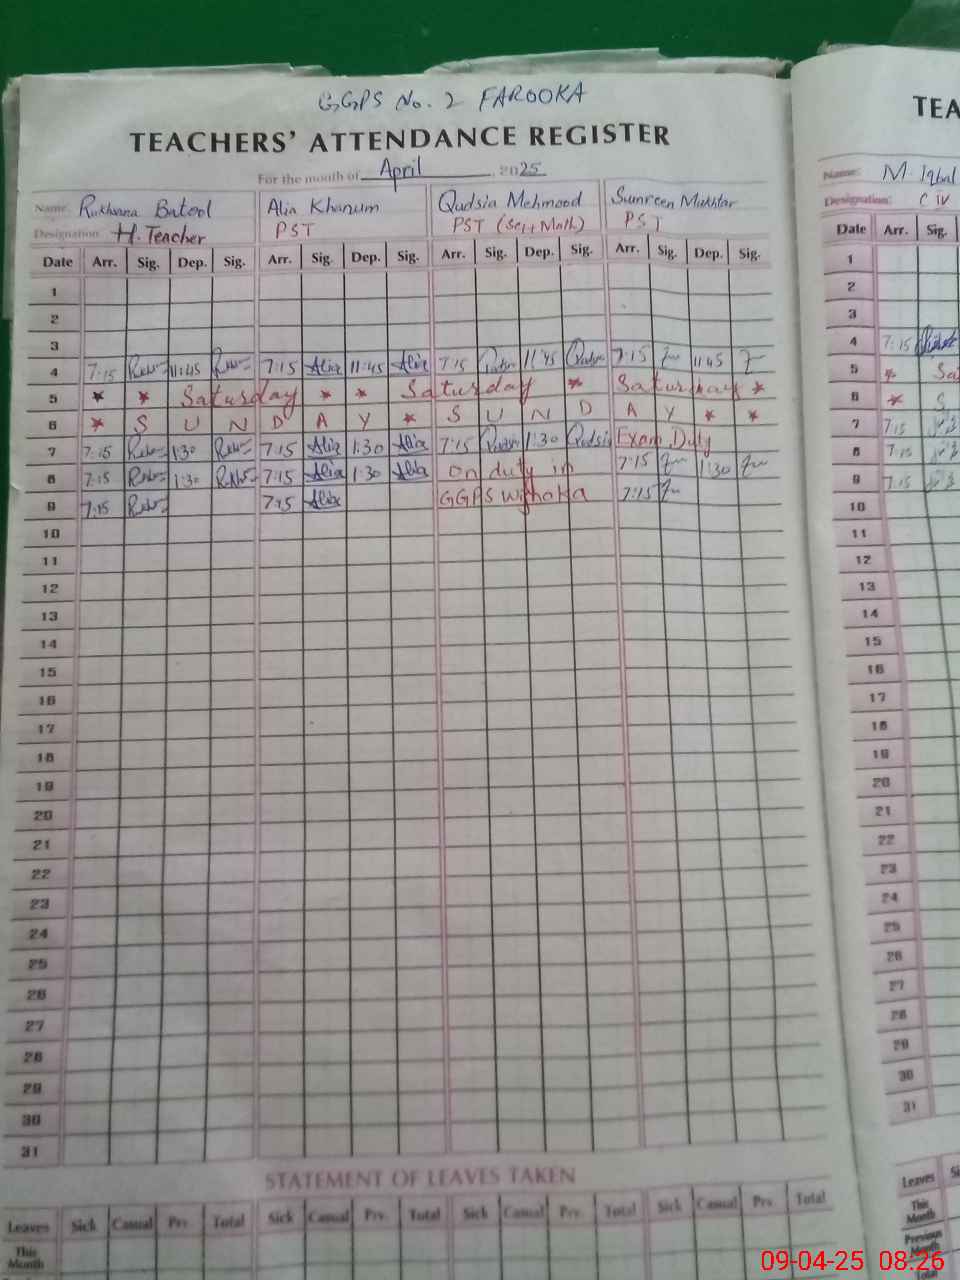 GGPS No. 2 FAROOKA
TEACHERS' ATTENDANCE REGISTER
For the month of April 2025
Name: Rukhsana Batool Alia Khanum Qudsia Mehmood Sumreen Mukhtar
Designation: H. Teacher PST PST (Sci+Math) PST
Date Arr. Sig. Dep. Sig. Arr. Sig. Dep. Sig. Arr. Sig. Dep. Sig. Arr. Sig. Dep. Sig.
1
2
3
4 7:15 11:45 7:15 Alia 11:45 Alia 7:15 11:45 7:15 11:45
5 * * Saturday * * Saturday * Saturday *
6 * S U N D A Y * S U N D A Y * *
7 7:15 1:30 7:15 Alia 1:30 Alia 7:15 1:30 Qudsia Exam Duty
8 7:15 1:30 7:15 Alia 1:30 Alia On duty in 7:15 1:30
9 7:15 7:15 Alia GGPS 7:15
10
11
12
13
14
15
16
17
18
19
20
21
22
23
24
25
26
27
28
29
30
31
STATEMENT OF LEAVES TAKEN
Leaves Sick Casual Prv. Total Sick Casual Prv. Total Sick Casual Prv. Total Sick Casual Prv. Total
This Month
TEA
Name: M. Iqbal
Designation: C IV
Date Arr. Sig.
1
2
3
4 7:15
5 * Sa
6 * S
7 7:15
8 7:15
9 7:15
10
11
12
13
14
15
16
17
18
19
20
21
22
23
24
25
26
27
28
29
30
31
Leaves
This Month
Previous Month
Total
09-04-25 08:26